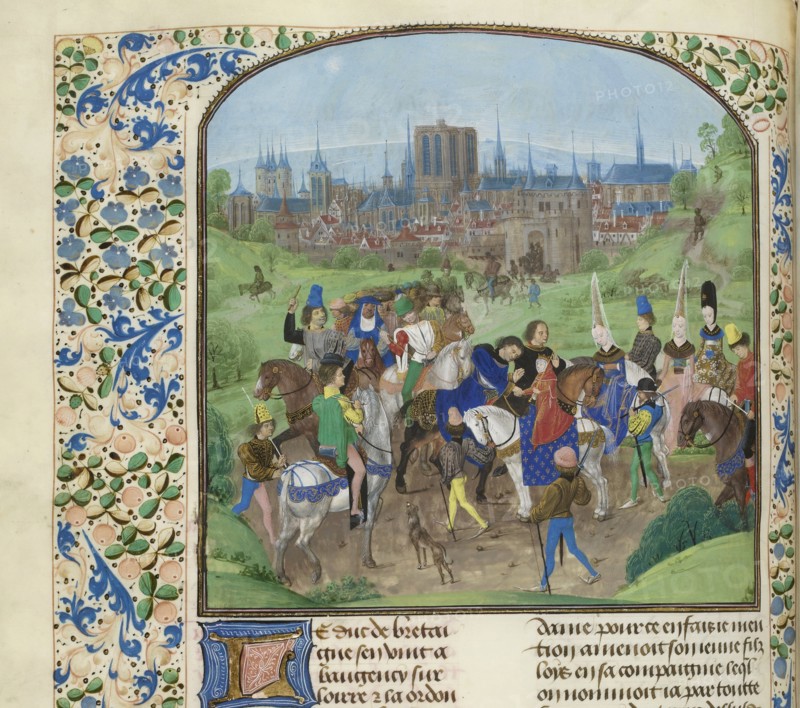 Le duc de bretai
gne sen vint a
baugency sur
loirre z la ordon
dame pour ce en fais ie men
tion amenoit son ieune filz
loys en sa compaignie leql
on nommoit ia par toutte
PHOTO12